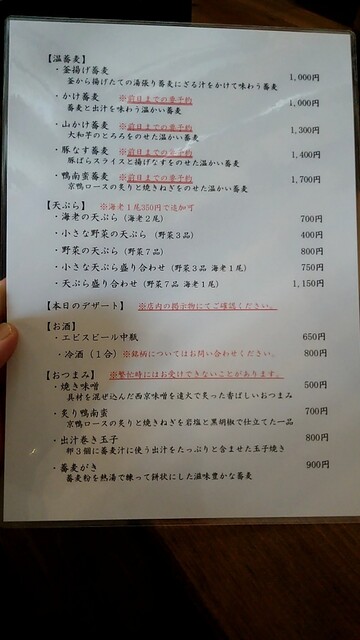 【温蕎麦】
・釜揚げ蕎麦 1,000円
釜から揚げたての湯張り蕎麦にざる汁をかけて味わう蕎麦
・かけ蕎麦 ※前日までの要予約 1,000円
蕎麦と出汁を味わう温かい蕎麦
・山かけ蕎麦 ※前日までの要予約 1,300円
大和芋のとろろをのせた温かい蕎麦
・豚なす蕎麦 ※前日までの要予約 1,400円
豚ばらスライスと揚げなすをのせた温かい蕎麦
・鴨南蛮蕎麦 ※前日までの要予約 1,700円
京鴨ロースの炙りと焼きねぎをのせた温かい蕎麦
【天ぷら】 ※海老1尾350円で追加可
・海老の天ぷら(海老2尾) 700円
・小さな野菜の天ぷら(野菜3品) 400円
・野菜の天ぷら(野菜7品) 800円
・小さな天ぷら盛り合わせ(野菜3品 海老1尾) 750円
・天ぷら盛り合わせ(野菜7品 海老1尾) 1,150円
【本日のデザート】 ※店内の掲示物にてご確認ください。
【お酒】
・エビスビール中瓶 650円
・冷酒(1合)※銘柄についてはお問い合わせください。 800円
【おつまみ】 ※繁忙時にはお受けできないことがあります。
・焼き味噌 500円
具材を混ぜ込んだ西京味噌を遠火で炙った香ばしいおつまみ
・炙り鴨南蛮 700円
京鴨ロースの炙りと焼きねぎを岩塩と黒胡椒で仕立てた一品
・出汁巻き玉子 800円
卵3個に蕎麦汁に使う出汁をたっぷりと含ませた玉子焼き
・蕎麦がき 900円
蕎麦粉を熱湯で練って餅状にした滋味豊かな蕎麦